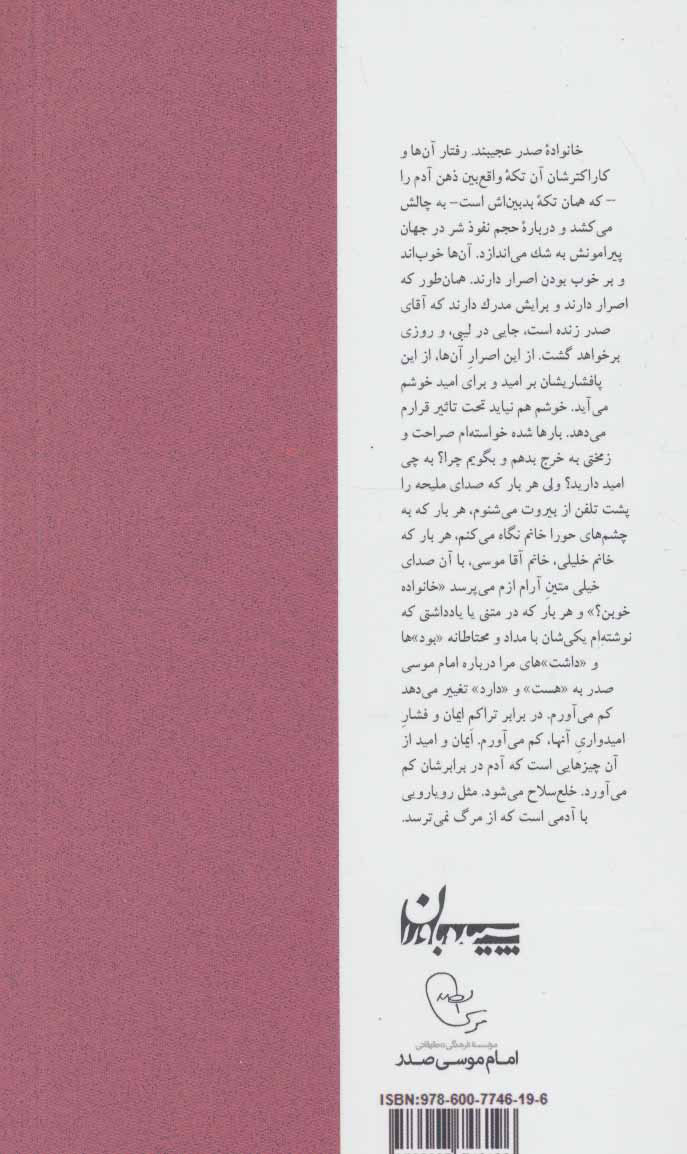 خانوادهٔ صدر عجیبند. رفتار آن‌ها و
کاراکترشان آن تکهٔ واقع‌بین ذهن آدم را
– که همان تکهٔ بدبین‌اش است– به چالش
می‌کشد و دربارهٔ حجم نفوذ شر در جهان
پیرامونش به شك می‌اندازد. آن‌ها خوب‌اند
و بر خوب بودن اصرار دارند. همان‌طور که
اصرار دارند و برایش مدرك دارند که آقای
صدر زنده است، جایی در لیبی، و روزی
برخواهد گشت. از این اصرارِ آن‌ها، از این
پافشاریشان بر امید و برای امید خوشم
می‌آید. خوشم هم نیاید تحت تاثیر قرارم
می‌دهد. بارها شده خواسته‌ام صراحت و
زمختی به خرج بدهم و بگویم چرا؟ به چی
امید دارید؟ ولی هر بار که صدای ملیحه را
پشت تلفن از بیروت می‌شنوم، هر بار که به
چشم‌های حورا خانم نگاه می‌کنم، هر بار که
خانم خلیلی، خانم آقا موسی، با آن صدای
خیلی متینِ آرام ازم می‌پرسد «خانواده
خوبن؟» و هر بار که در متنی یا یادداشتی که
نوشته‌ام یکی‌شان با مداد و محتاطانه «بود»ها
و «داشت»های مرا درباره امام موسی
صدر به «هست» و «دارد» تغییر می‌دهد
کم می‌آورم. در برابر تراکم ایمان و فشارِ
امیدواریِ آنها، کم می‌آورم. ایمان و امید از
آن چیزهایی است که آدم در برابرشان کم
می‌آورد. خلع‌سلاح می‌شود. مثل رویارویی
با آدمی است که از مرگ نمی‌ترسد.
سپیده باوران
موسسهٔ فرهنگی تحقیقاتی
امام موسی صدر
ISBN:978-600-7746-19-6